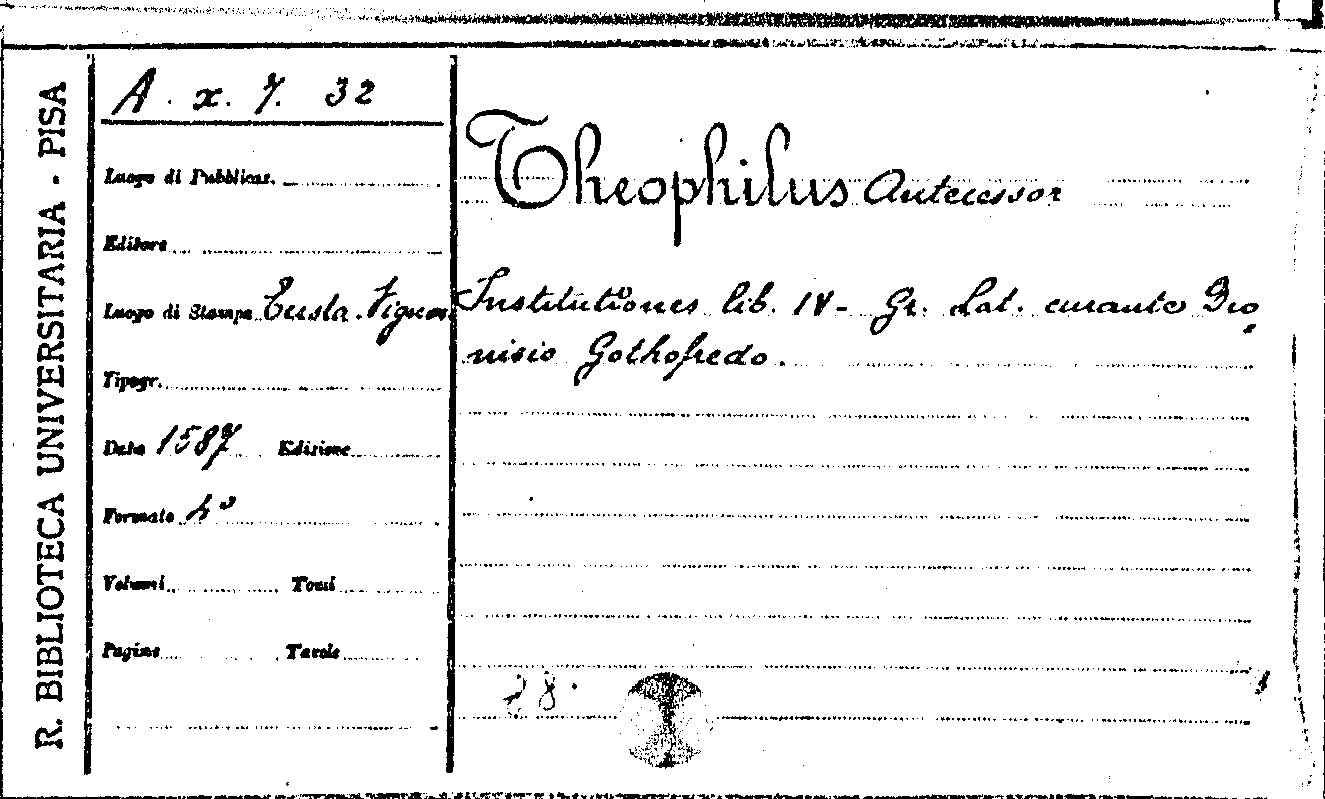 R. BIBLIOTECA UNIVERSITARIA - PISA
A. x. 7. 32
Luogo di Pubblicaz.
Editore
Luogo di Stampa Eusta. Vignon
Tipogr.
Data 1587 Edizione
Formato 4°
Volumi Tomi
Pagine Tavole
Theophilus Antecessor
Institutiones lib. IV - Gr. Lat. curante Dio
nisio Gothofredo.
28.